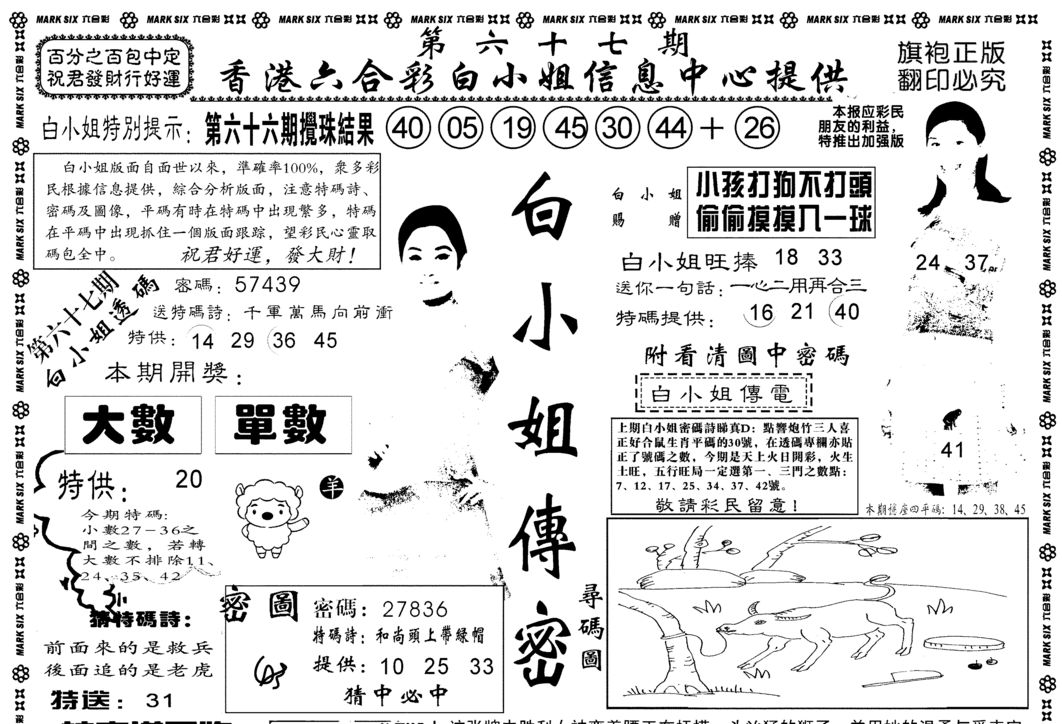 MARK SIX 六合彩 MARK SIX 六合彩 MARK SIX 六合彩 MARK SIX 六合彩 MARK SIX 六合彩 MARK SIX 六合彩 MARK SIX 六合彩 MARK SIX 六合彩
百分之百包中定
祝君發財行好運
第六十七期
香港六合彩白小姐信息中心提供
旗袍正版
翻印必究
白小姐特別提示: 第六十六期攪珠結果 40 05 19 45 30 44 + 26
本报应彩民
朋友的利益,
特推出加强版
白小姐版面自面世以來，準確率100%，衆多彩
民根據信息提供，綜合分析版面，注意特碼詩、
密碼及圖像，平碼有時在特碼中出現繁多，特碼
在平碼中出現抓住一個版面跟踪，望彩民心靈取
碼包全中。 祝君好運，發大財!
第六十七期
白小姐透碼
密碼: 57439
送特碼詩: 千軍萬馬向前衝
特供: 14 29 36 45
本期開獎:
大數 單數
特供: 20
羊
今期特碼:
小數27－36之
間之數，若轉
大數不排除11、
24、35、42
猜特碼詩:
前面來的是救兵
後面追的是老虎
特送: 31
密圖
密碼: 27836
特碼詩: 和尚頭上帶緑帽
提供: 10 25 33
猜中必中
白小姐傳密
白小姐
賜贈
小孩打狗不打頭
偷偷摸摸入一球
白小姐旺捧 18 33
送你一句話: 一心二用再合三
特碼提供: 16 21 40
附看清圖中密碼
白小姐傳電
上期白小姐密碼詩睇真D: 點響炮竹三人喜
正好合鼠生肖平碼的30號，在透碼專欄亦貼
正了號碼之數，今期是天上火日開彩，火生
土旺，五行旺局一定選第一、三門之數點:
7、12、17、25、34、37、42號。
敬請彩民留意!
24 37
41
本期特座四平碼: 14、29、38、45
尋碼圖